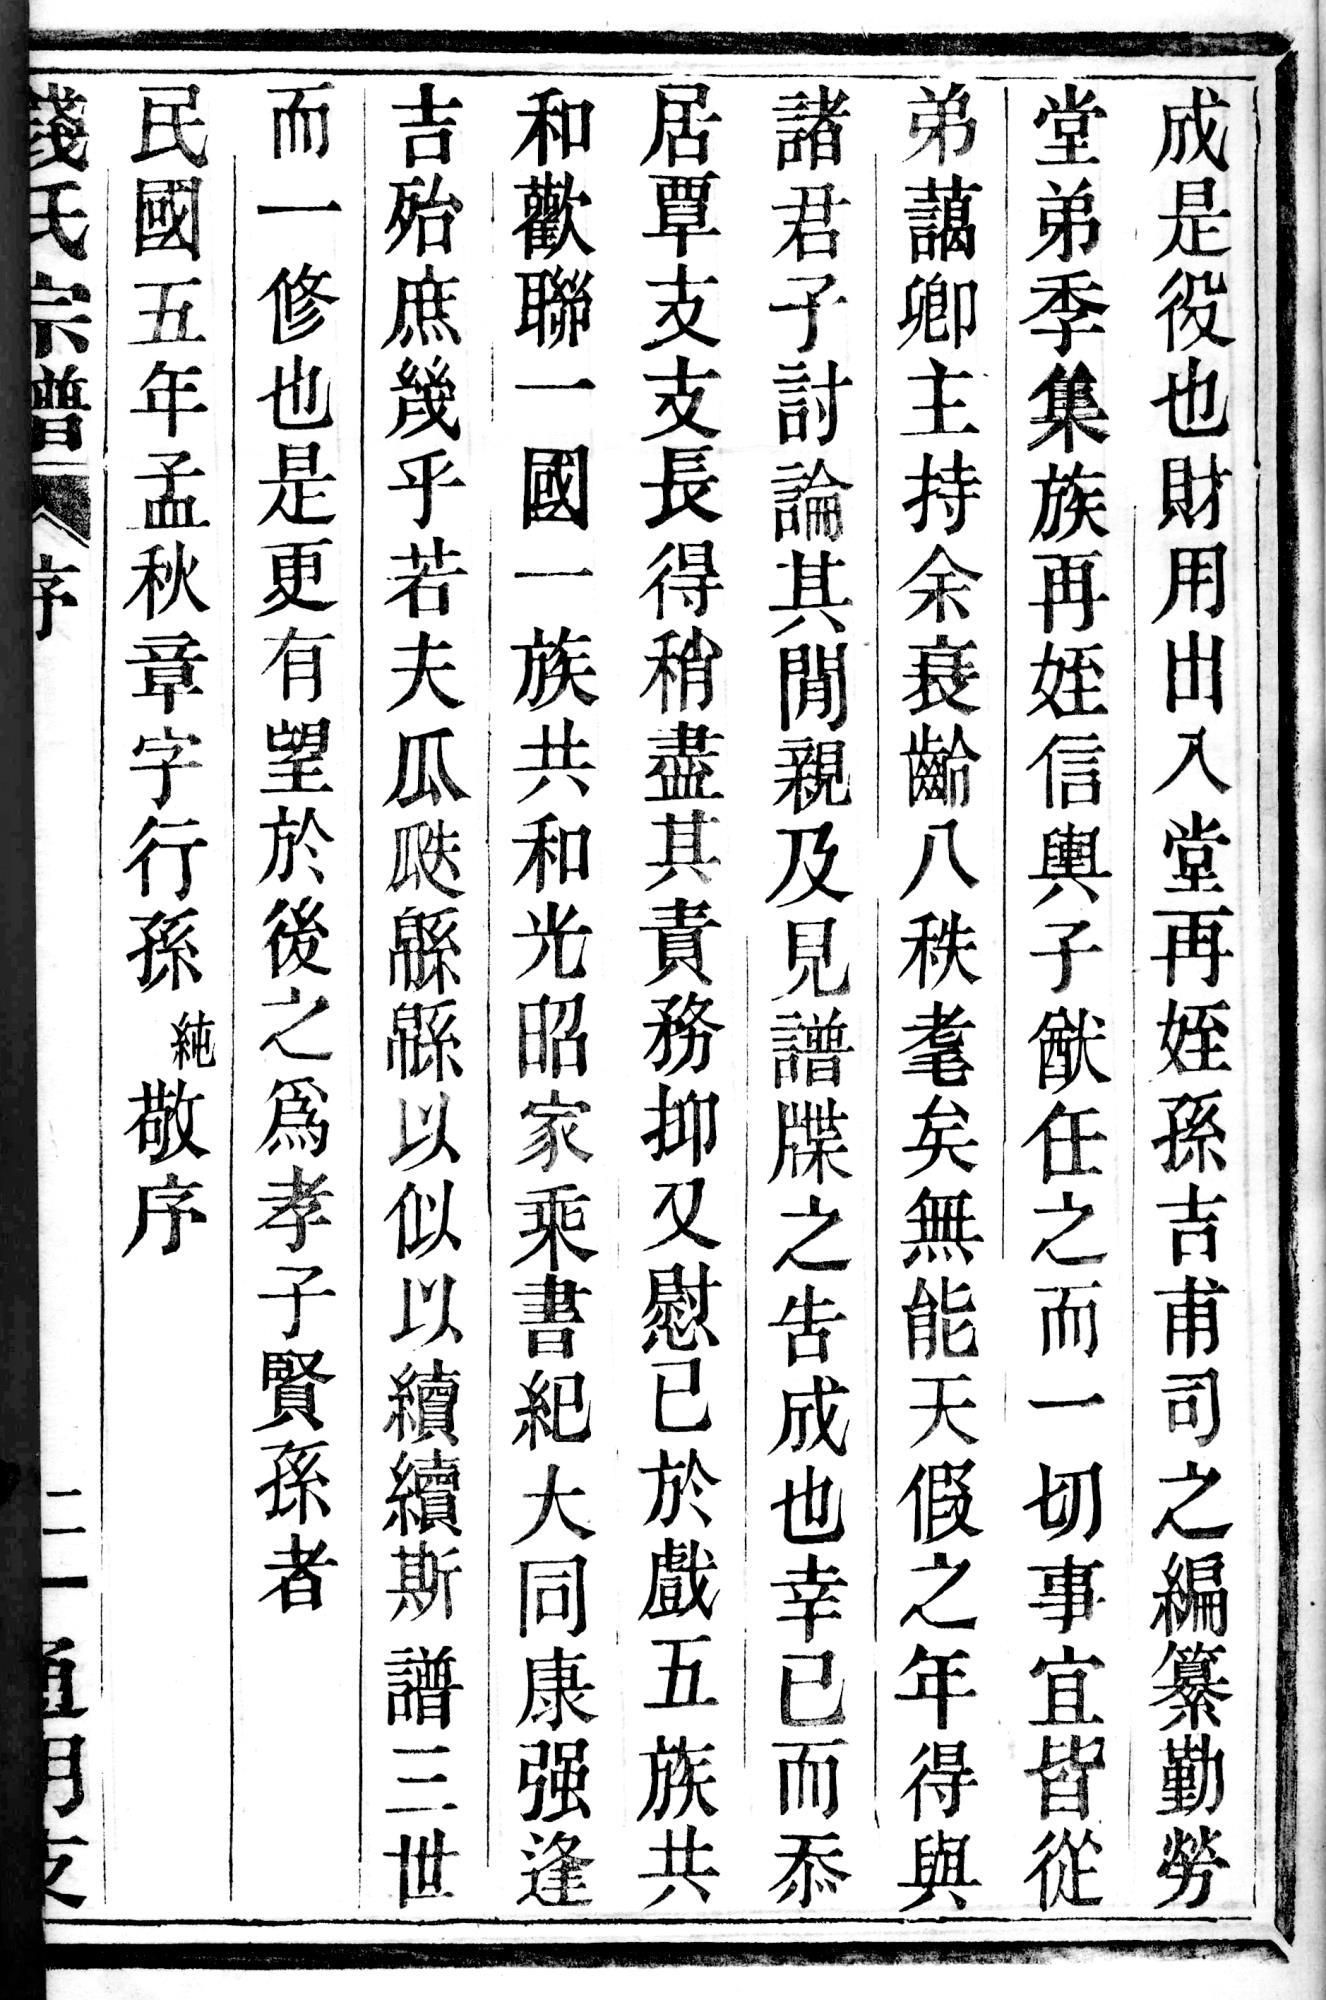 成是役也財用出入堂再姪孫吉甫司之編纂勤勞
堂弟季集族再姪信輿子猷任之而一切事宜皆從
弟藹卿主持余衰齡八秩耄矣無能天假之年得與
諸君子討論其閒親及見譜牒之告成也幸已而忝
居覃支支長得稍盡其責務抑又慰已於戲五族共
和歡聯一國一族共和光昭家乘書紀大同康强逢
吉殆庶幾乎若夫瓜瓞緜緜以似以續續斯譜三世
而一修也是更有望於後之爲孝子賢孫者
民國五年孟秋章字行孫純敬序
錢氏宗譜 序 二 一 通明支